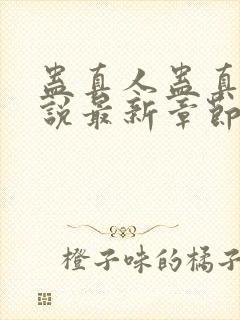 蛊真人蛊真
說最新章節
橙子味的橘子